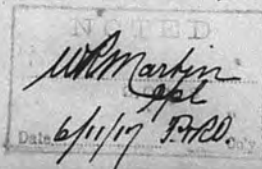 NOTED
WRMartin
Cpl
Date 6/11/17 P.R.D. Co'y